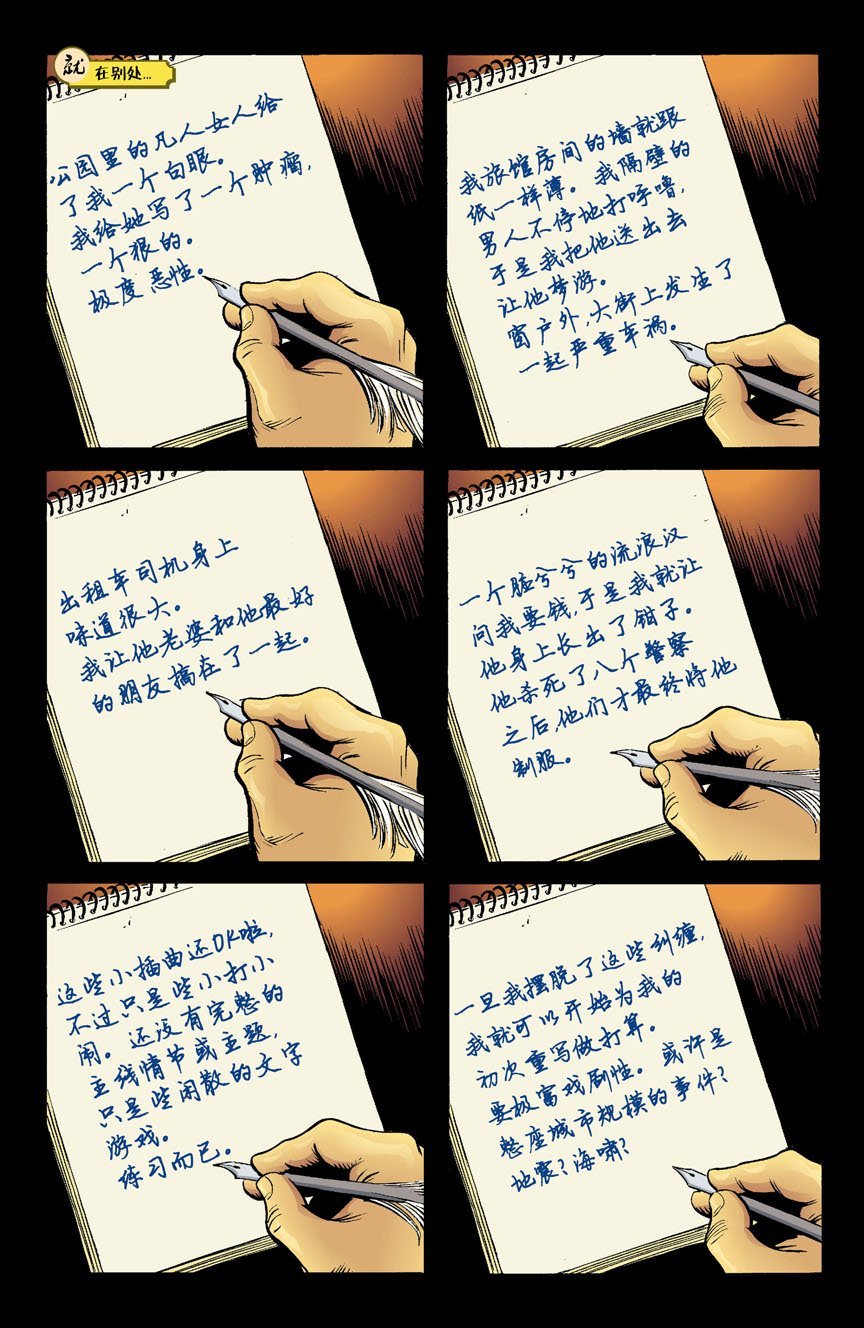 就
在别处...
公园里的凡人女人给
了我一个白眼。
我给她写了一个肿瘤，
一个狠的。
极度恶性。
我旅馆房间的墙就跟
纸一样薄。我隔壁的
男人不停地打呼噜，
于是我把他送出去
让他梦游。
窗户外，大街上发生了
一起严重车祸。
出租车司机身上
味道很大。
我让他老婆和他最好
的朋友搞在了一起。
一个脏兮兮的流浪汉
问我要钱，于是我就让
他身上长出了钳子。
他杀死了八个警察
之后，他们才最终将他
制服。
这些小插曲还OK啦，
不过只是些小打小
闹。还没有完整的
主线情节或主题，
只是些闲散的文字
游戏。
练习而已。
一旦我摆脱了这些纠缠，
我就可以开始为我的
初次重写做打算。
要极富戏剧性。或许是
整座城市规模的事件？
地震？海啸？